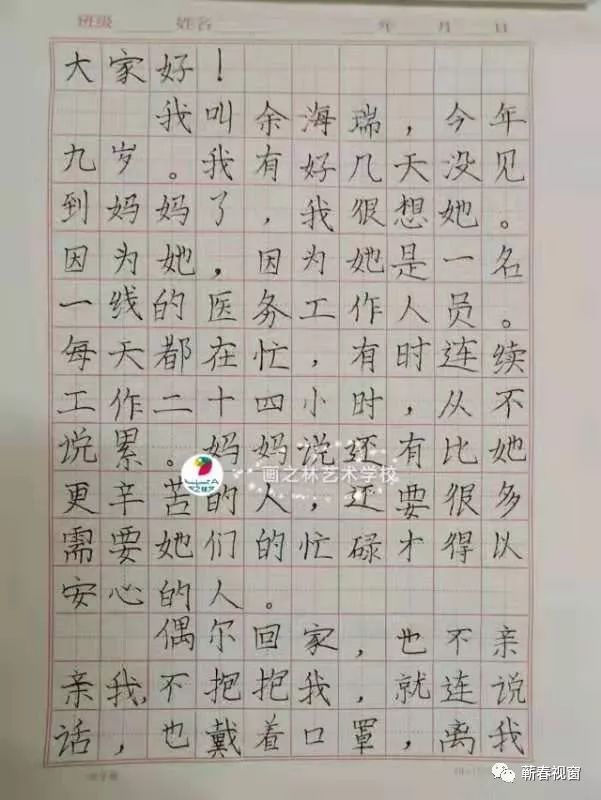 班级 姓名 年 月 日
大家好！
我叫余海瑞，今年
九岁。我有好几天没见
到妈妈了，我很想她。
因为她，因为她是一名
一线的医务工作人员。
每天都在忙，有时连续
工作二十四小时，从不
说累。妈妈说还有比她
画之林艺术学校
更辛苦的人，还要很多
需要她们的忙碌才得以
安心的人。
偶尔回家，也不亲
亲我，不抱抱我，就连说
话，也戴着口罩，离我
蕲春视窗